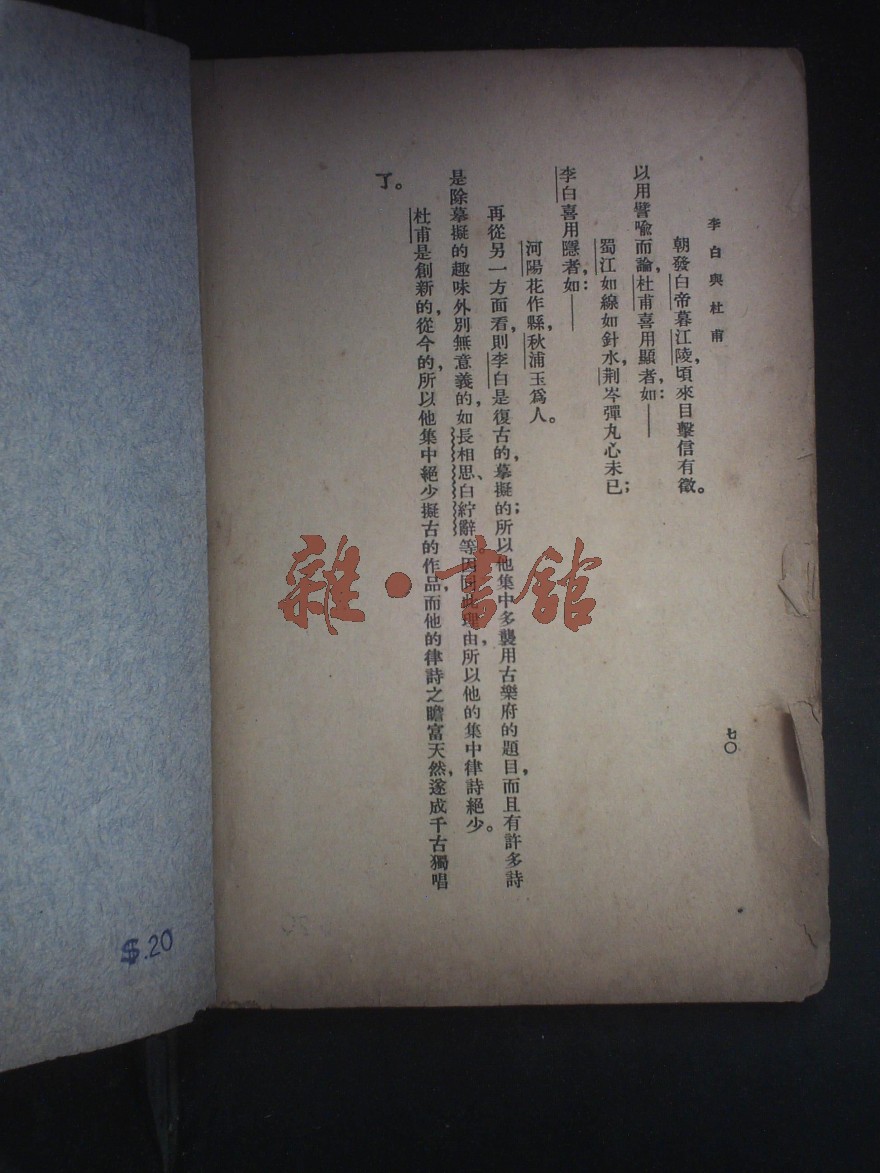 李白與杜甫
朝發白帝暮江陵，頃來目擊信有徵。
以用譬喩而論，杜甫喜用顯者，如：——
蜀江如線如針水，荆岑彈丸心未已；
李白喜用隱者，如：——
河陽花作縣，秋浦玉爲人。
再從另一方面看，則李白是復古的，摹擬的；所以他集中多襲用古樂府的題目，而且有許多詩
是除摹擬的趣味外別無意義的，如長相思、白紵辭等。因此理由，所以他的集中律詩絕少。
杜甫是創新的，從今的，所以他集中絕少擬古的作品，而他的律詩之瞻富天然，遂成千古獨唱
了。
七〇
雜·書館
$.20